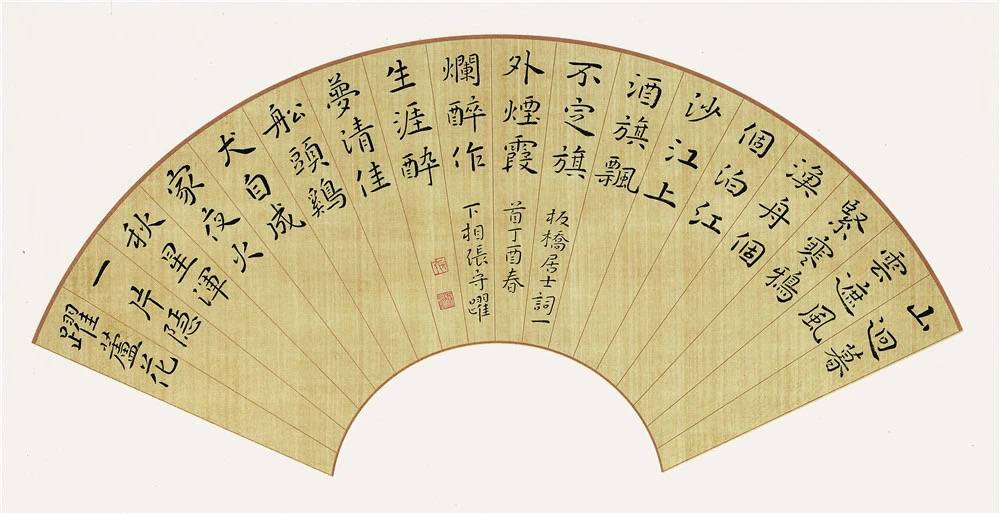 山迥暮
雲遮風
緊寒鴉
漁舟個
個泊江
沙江上
酒旗飄
不定旗
外煙霞
爛醉作
生涯酔
夢清佳
舩頭鷄
犬自成
家夜火
秋星渾
一片隱
躍蘆花
板橋居士詞一
首丁酉春
下相張守躍